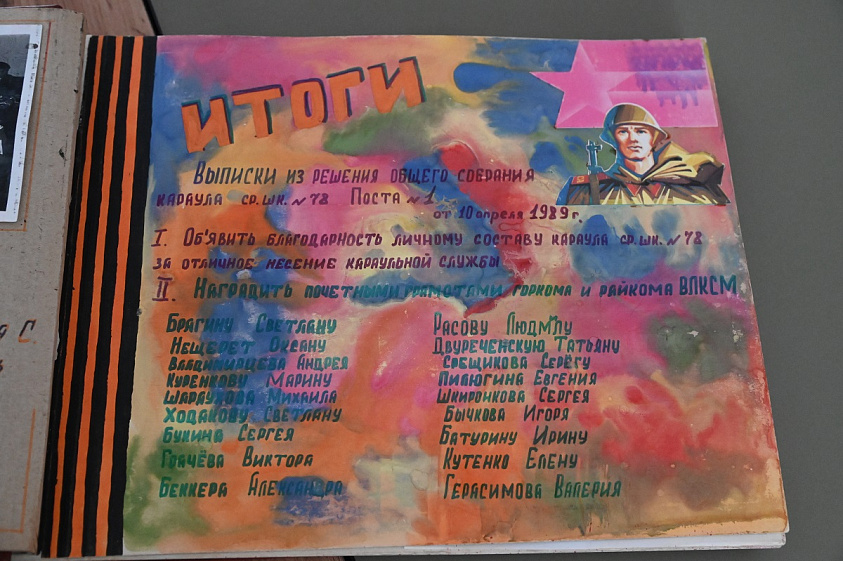 ИТОГИ
Выписки из решения общего собрания
караула ср. шк. №78 Поста №1
от 10 апреля 1989 г.
I. Об'явить благодарность личному составу караула ср. шк. №78
за отличное несение караульной службы
II. Наградить почетными грамотами горкома и райкома ВЛКСМ
Брагину Светлану
Нещерет Оксану
Владимирцева Андрея
Куренкову Марину
Шараухова Михаила
Ходакову Светлану
Букина Сергея
Грачёва Виктора
Беккера Александра
Расову Людмилу
Двуреченскую Татьяну
Срещикова Серёгу
Пилюгина Евгения
Шкиронкова Сергея
Бычкова Игоря
Батурину Ирину
Кутенко Елену
Герасимова Валерия